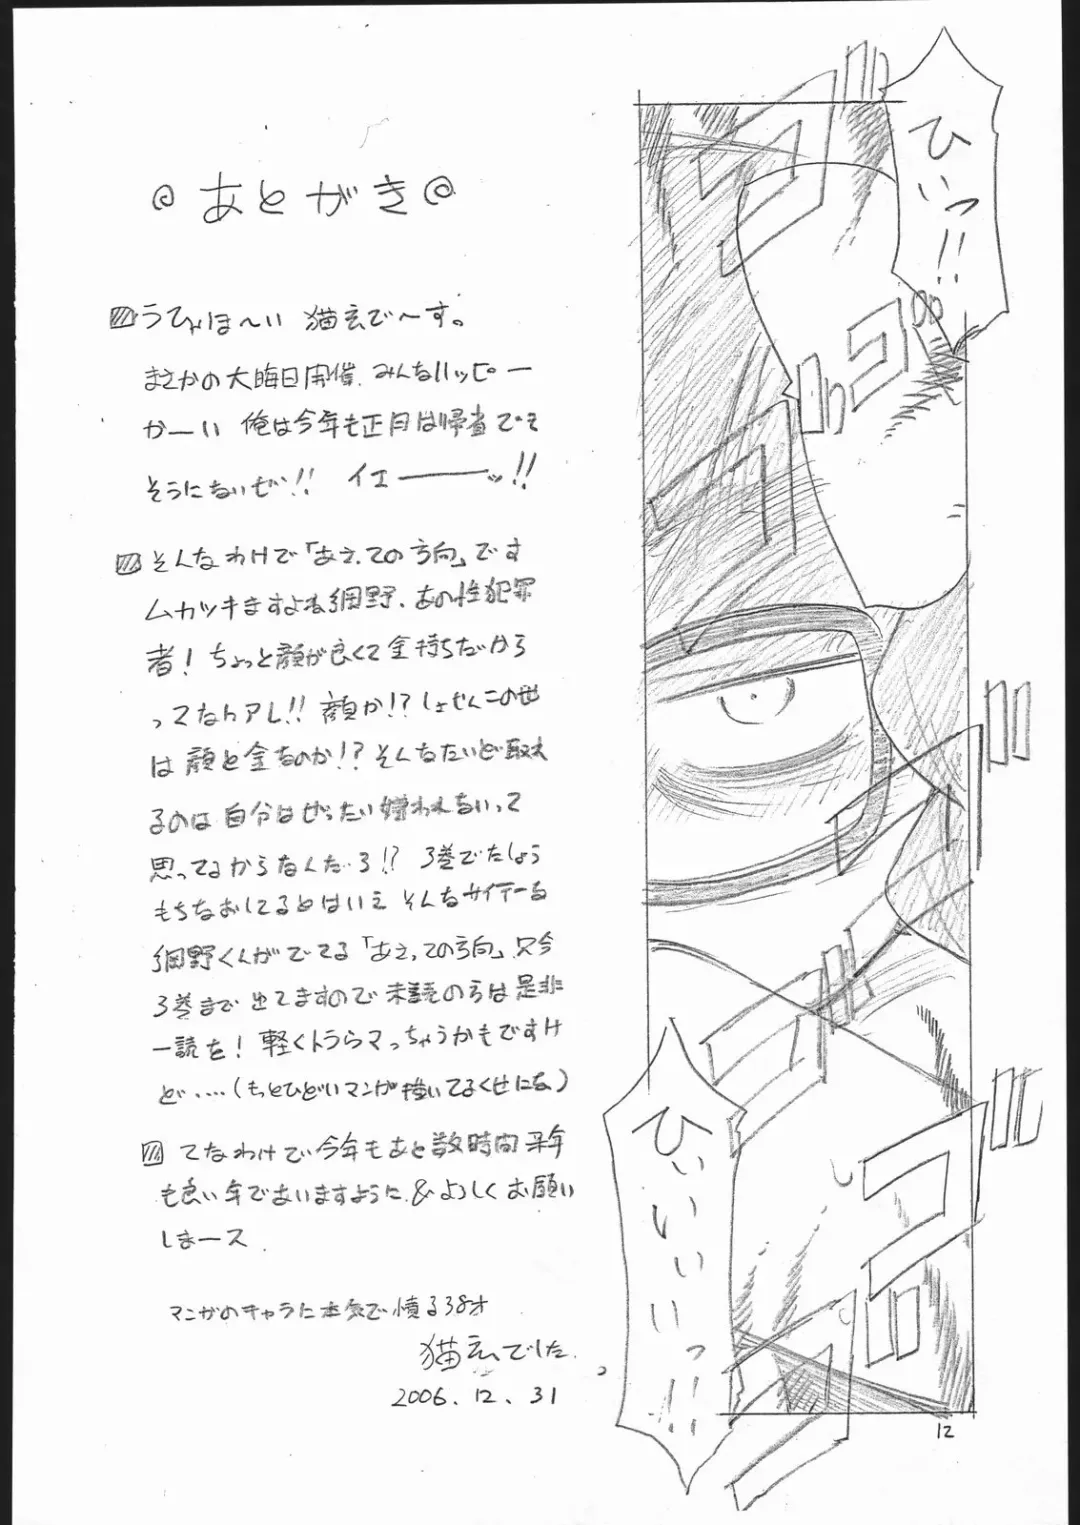 あとがき
うひょほ〜い 猫玄で〜す。
まさかの大晦日開催、みんなハッピー
かーい 俺は今年も正月は帰省でき
そうにないぜ!! イエーーーッ!!
そんなわけで「あえての方向」です
ムカツキますよね網野、あの性犯罪
者! ちょっと顔が良くて金持ちだから
ってなんアレ!! 顔か!? しょせんこの世
は顔と金なのか!? そんなたいど取れ
るのは自分はぜったい嫌われないって
思ってるからなんだろ!? 3巻でたしょう
もちなおしてるとはいえ そんなサイテーな
網野くんがでてる「あえての方向」只今
3巻まで出てますので未読の方は是非
一読を! 軽くトラウマっちゃうかもですけ
ど・・・・(もっとひどいマンガ描いてるくせにな)
てなわけで今年もあと数時間 来年
も良い年でありますように & よろしくお願い
しまース
マンガのキャラに本気で憤る38才
猫玄でした。
2006.12.31
ひいっ!!
ひいいいいっ!!
12